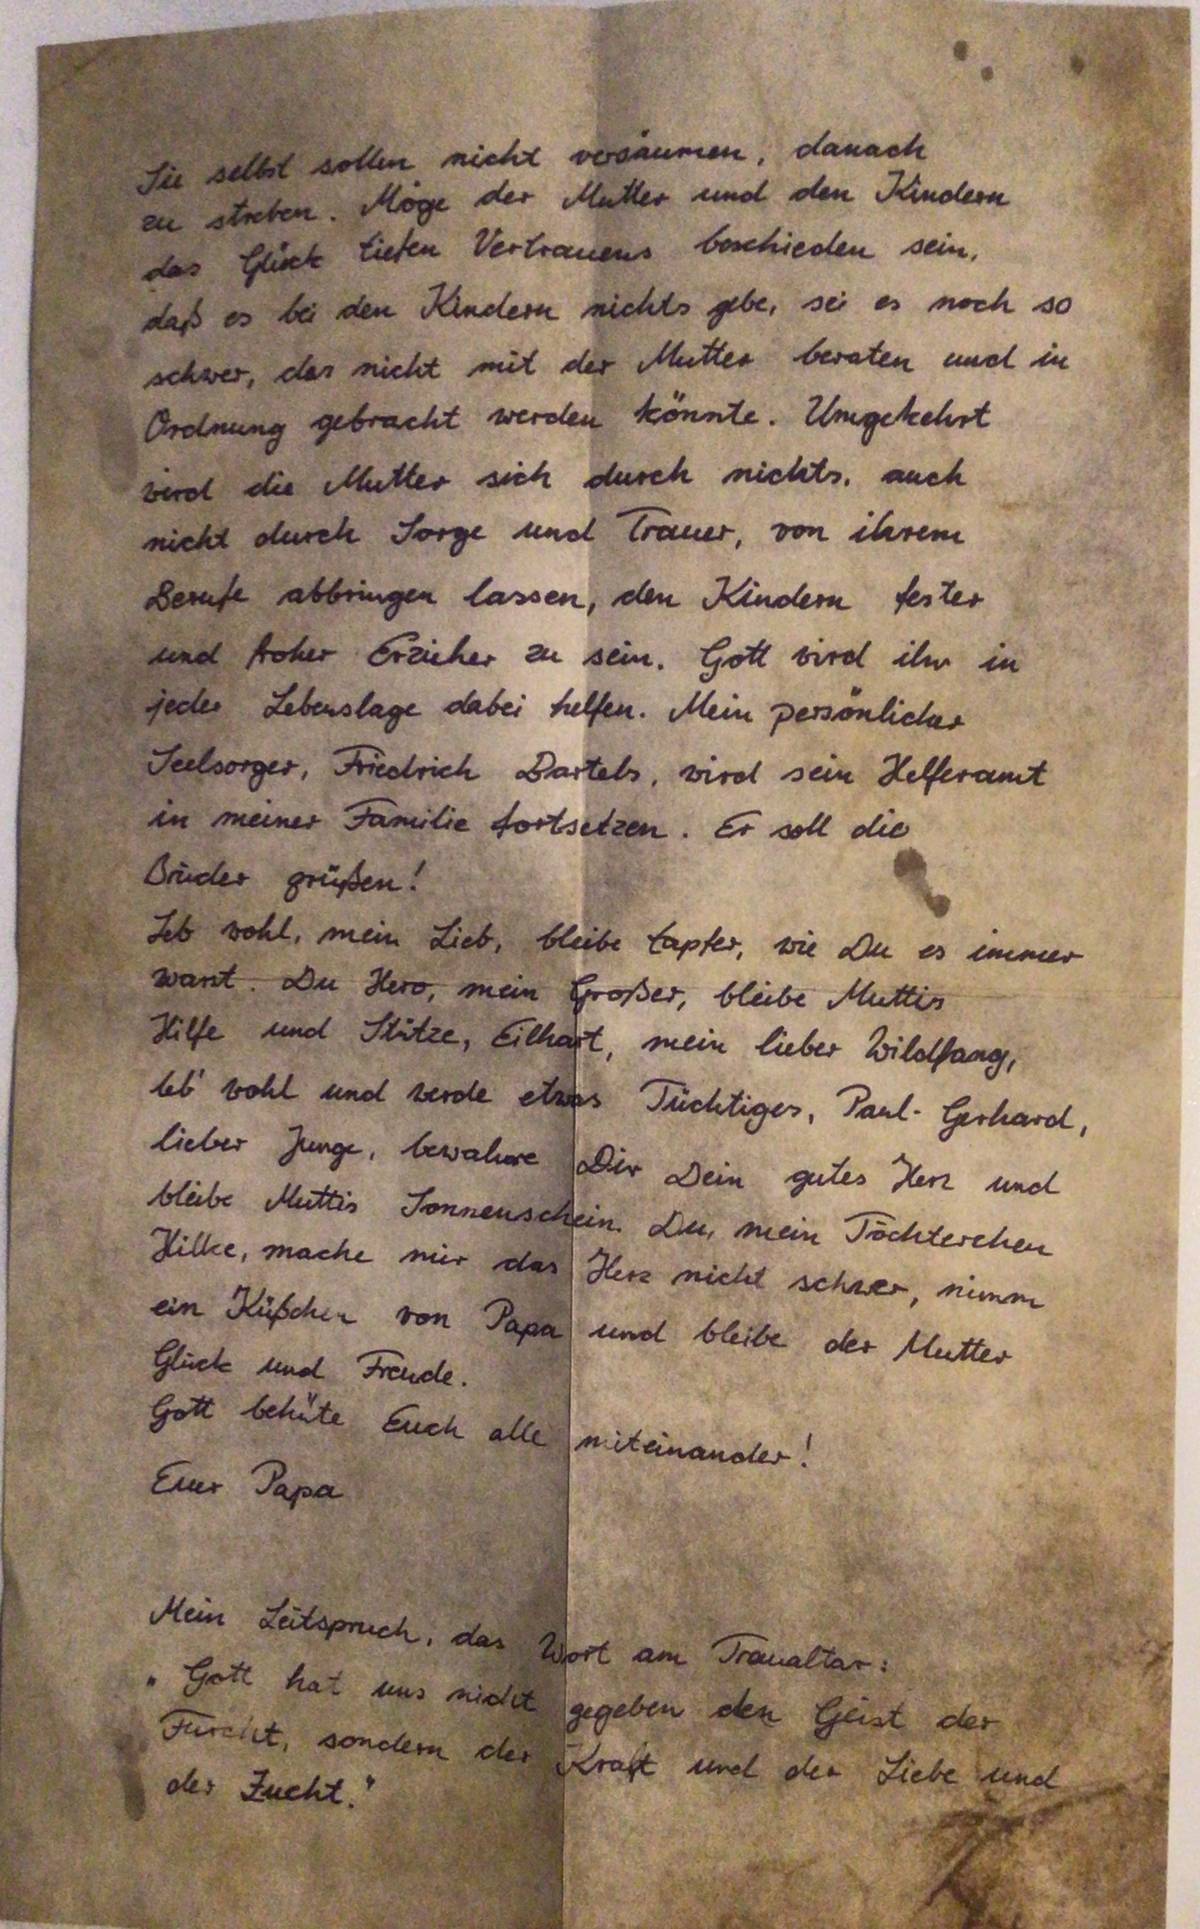 Sie selbst sollen nicht versäumen, danach
zu streben. Möge der Mutter und den Kindern
das Glück tiefen Vertrauens beschieden sein,
daß es bei den Kindern nichts gebe, sei es noch so
schwer, das nicht mit der Mutter beraten und in
Ordnung gebracht werden könnte. Umgekehrt
wird die Mutter sich durch nichts, auch
nicht durch Sorge und Trauer, von ihrem
Berufe abbringen lassen, den Kindern fester
und froher Erzieher zu sein. Gott wird ihr in
jeder Lebenslage dabei helfen. Mein persönlicher
Seelsorger, Friedrich Bartels, wird sein Helferamt
in meiner Familie fortsetzen. Er soll die
Brüder grüßen!
Leb wohl, mein Lieb, bleibe tapfer, wie Du es immer
warst. Du Hero, mein Großer, bleibe Muttis
Hilfe und Stütze, Eilhart, mein lieber Wildfang,
leb' wohl und werde etwas Tüchtiges, Paul-Gerhard,
lieber Junge, bewahre Dir Dein gutes Herz und
bleibe Muttis Sonnenschein. Du, mein Töchterchen
Hilke, mache mir das Herz nicht schwer, nimm
ein Küßchen von Papa und bleibe der Mutter
Glück und Freude.
Gott behüte Euch alle miteinander!
Euer Papa
Mein Leitspruch, das Wort am Traualtar:
"Gott hat uns nicht gegeben den Geist der
Furcht, sondern der Kraft und der Liebe und
der Zucht."